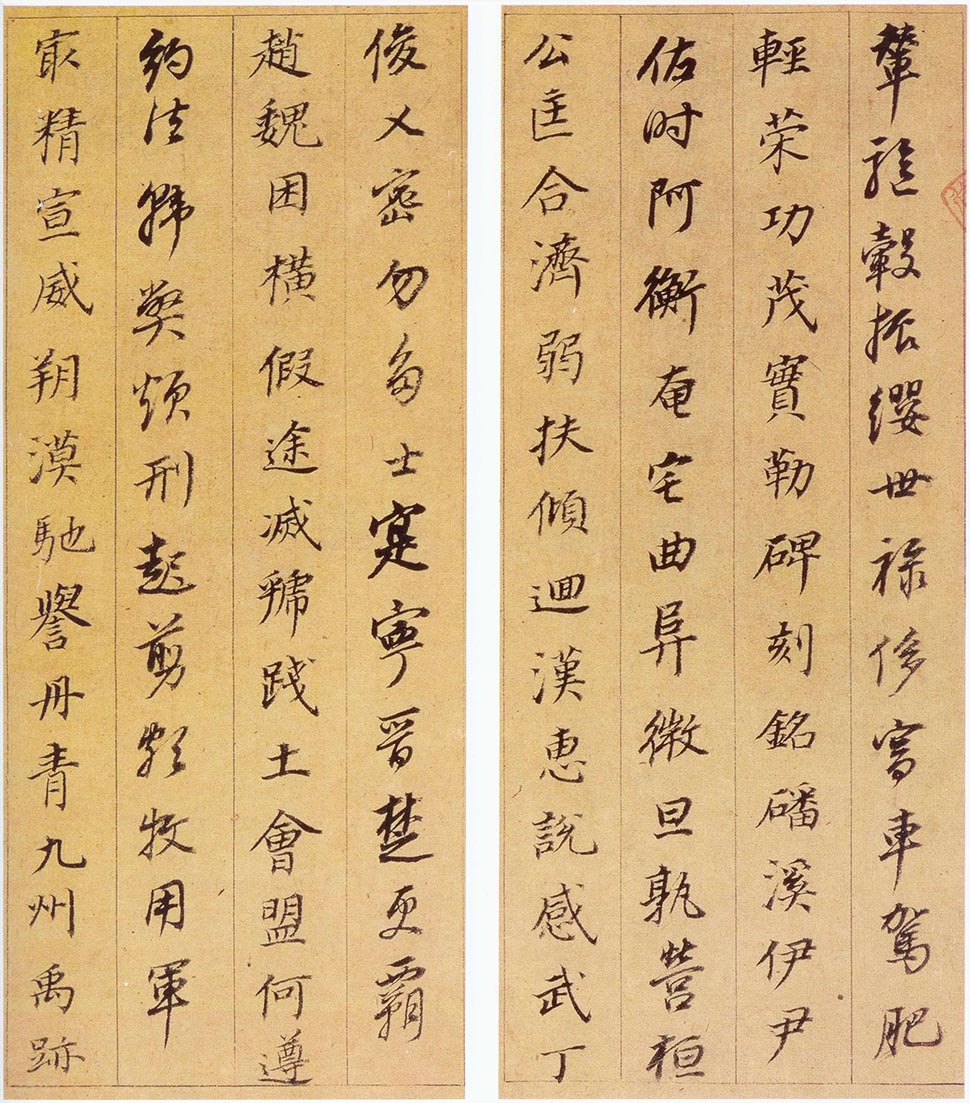 輦驅轂振纓世祿侈富車駕肥
輕策功茂實勒碑刻銘磻溪伊尹
佐时阿衡奄宅曲阜微旦孰營桓
公匡合濟弱扶傾迴漢惠說感武丁
俊乂密勿多士寔寧晉楚更霸
趙魏困橫假途滅虢踐土會盟何遵
約法韓弊煩刑起剪頗牧用軍
最精宣威朔漠馳譽丹青九州禹跡